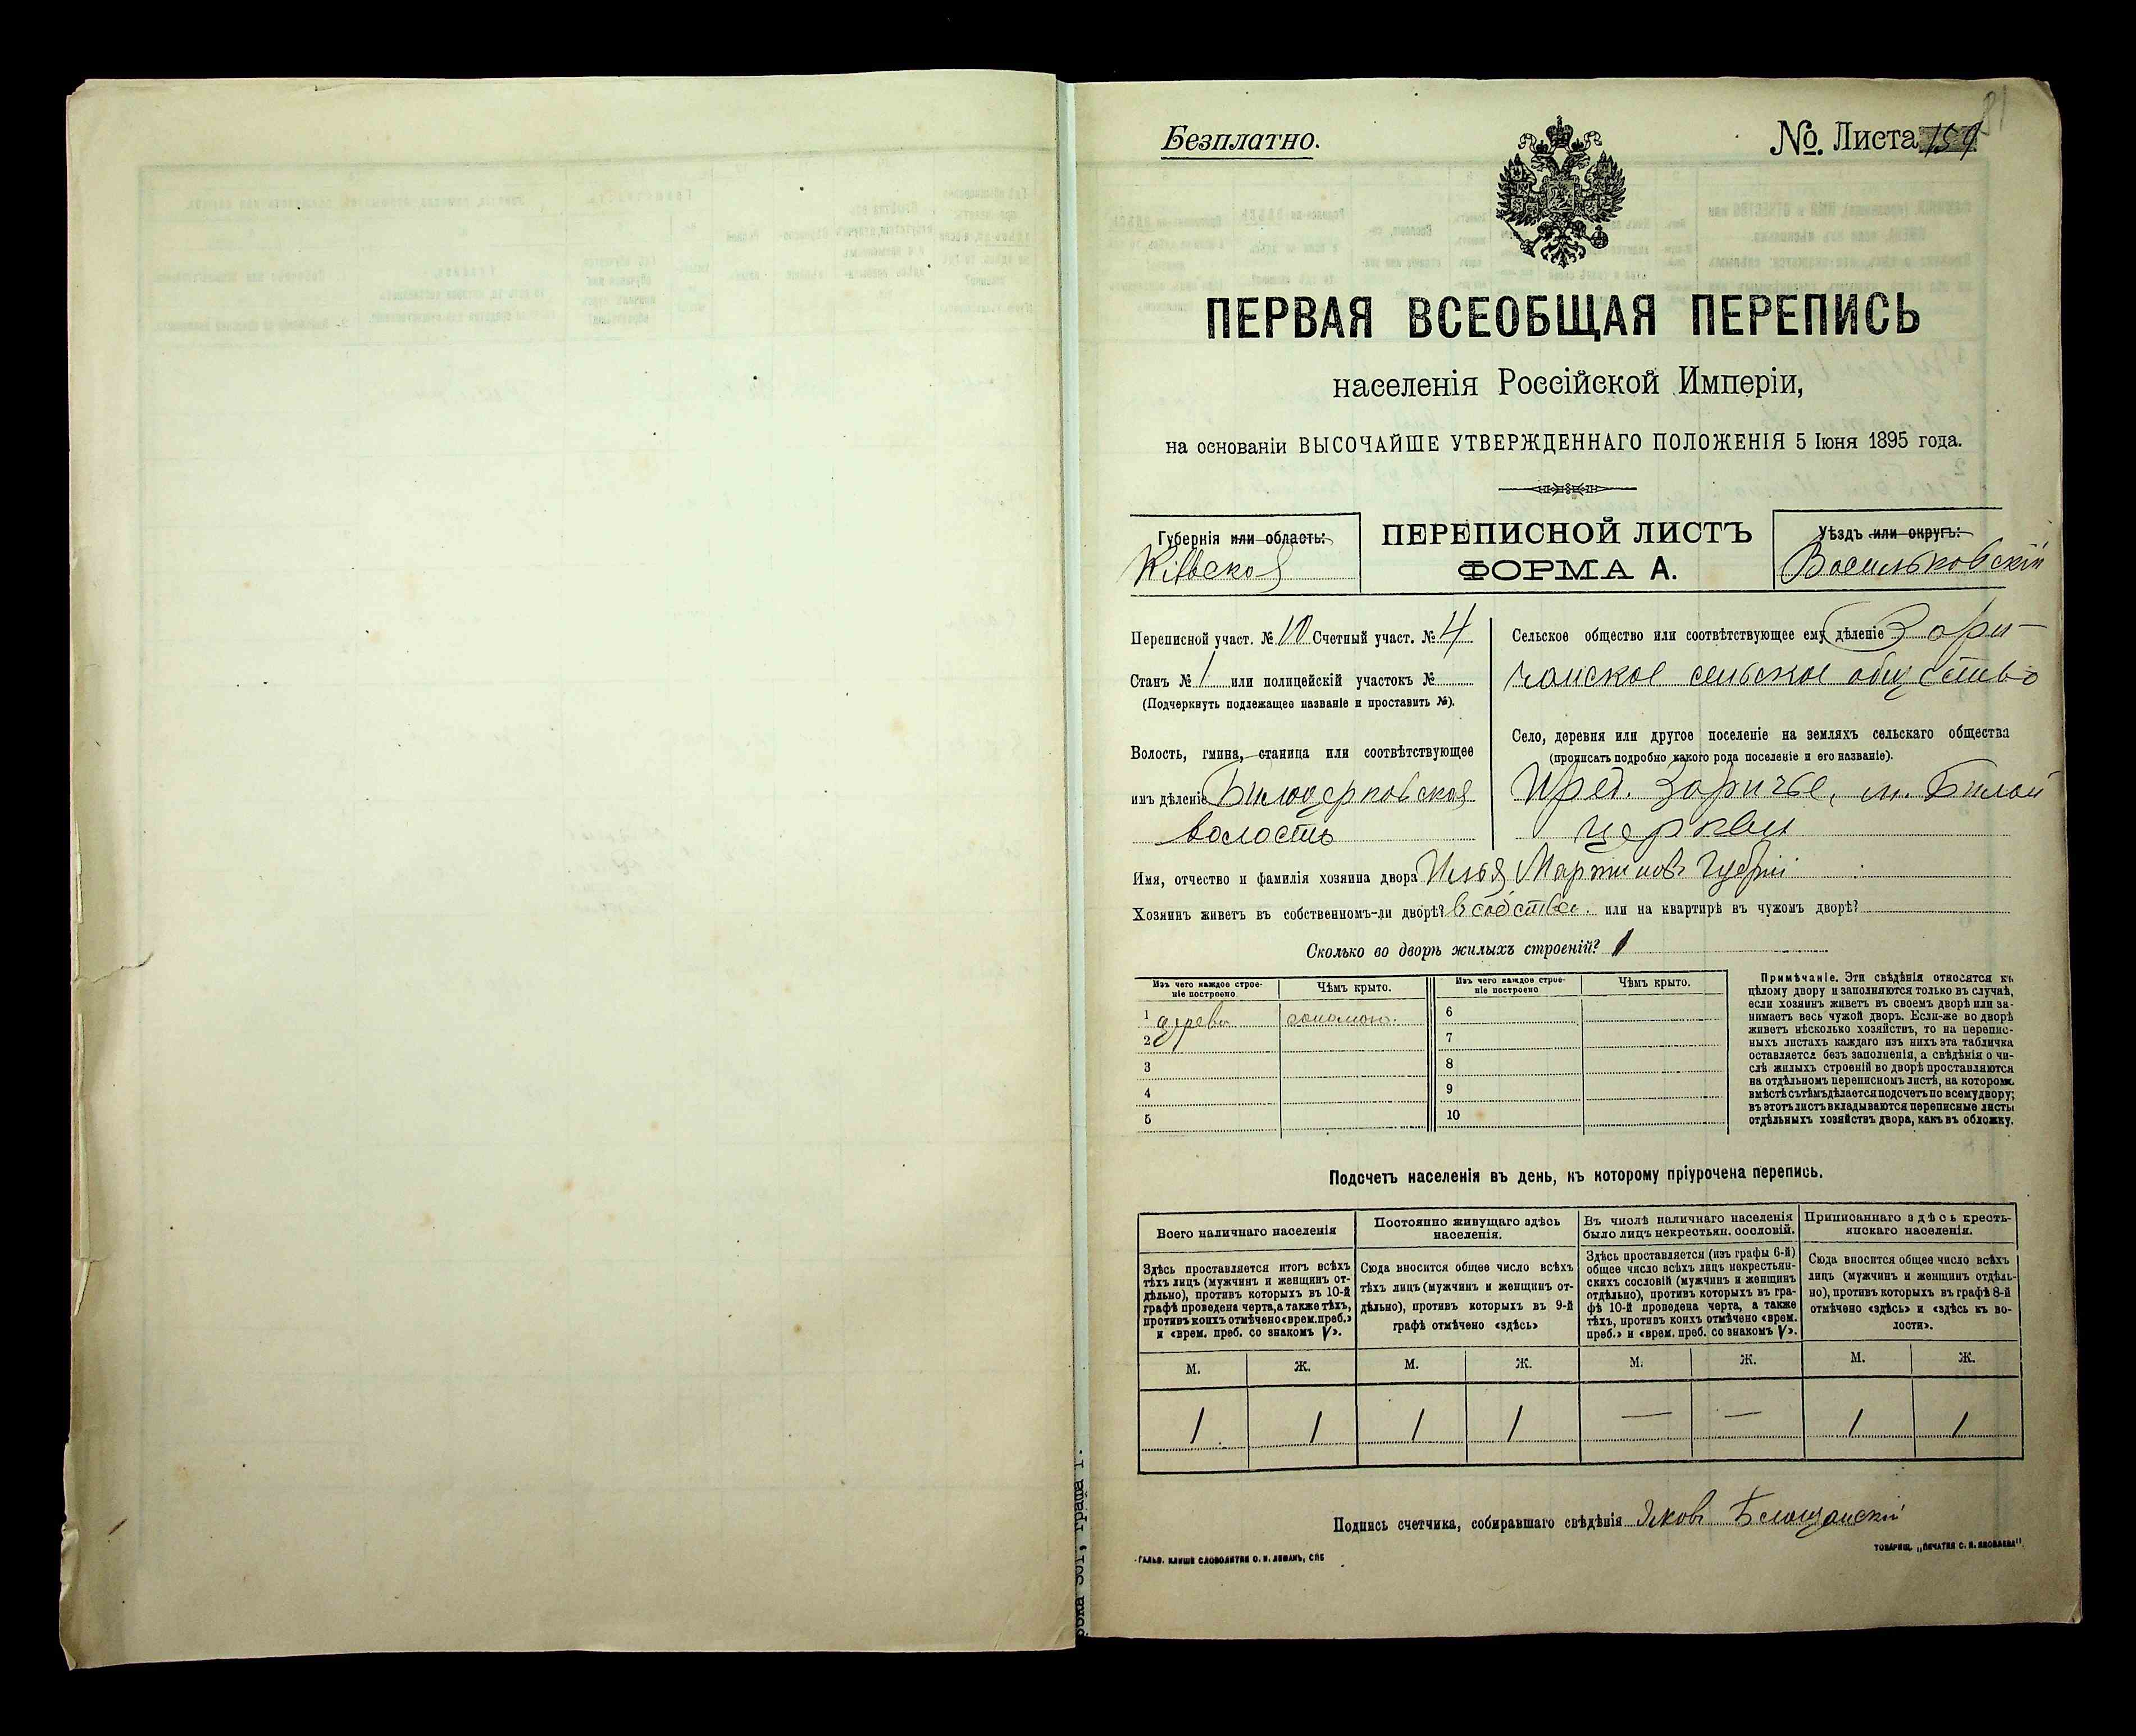 Безплатно.
№. Листа 159
81
ПЕРВАЯ ВСЕОБЩАЯ ПЕРЕПИСЬ
населенія Россійской Имперіи,
на основаніи ВЫСОЧАЙШЕ УТВЕРЖДЕННАГО ПОЛОЖЕНІЯ 5 Іюня 1895 года.
Губернія или область:
Кіевская
ПЕРЕПИСНОЙ ЛИСТЪ
ФОРМА А.
Уѣздъ или округъ:
Васильковскій
Переписной участ. № 10 Счетный участ. № 4
Станъ № 1 или полицейскій участокъ №
(Подчеркнуть подлежащее названіе и проставить №).
Волость, гмина, станица или соотвѣтствующее
имъ дѣленіе Билоцерковская
волость
Сельское общество или соотвѣтствующее ему дѣленіе Зари-
чанское сельское общество
Село, деревня или другое поселеніе на земляхъ сельскаго общества
(прописать подробно какого рода поселеніе и его названіе).
Пред. Заричье, м. Билой
церкви
Имя, отчество и фамилія хозяина двора Илья Мартиновъ Губрій
Хозяинъ живетъ въ собственномъ-ли дворѣ? в собствен. или на квартирѣ въ чужомъ дворѣ?
Сколько во дворѣ жилыхъ строеній? 1
Изъ чего каждое строе-
ніе построено
Чѣмъ крыто.
Изъ чего каждое строе-
ніе построено
Чѣмъ крыто.
1 дерева соломою.
2
3
4
5
6
7
8
9
10
Примѣчаніе. Эти свѣдѣнія относятся къ
цѣлому двору и заполняются только въ случаѣ,
если хозяинъ живетъ въ своемъ дворѣ или за-
нимаетъ весь чужой дворъ. Если-же во дворѣ
живетъ нѣсколько хозяйствъ, то на перепис-
ныхъ листахъ каждаго изъ нихъ эта табличка
оставляется безъ заполненія, а свѣдѣнія о чи-
слѣ жилыхъ строеній во дворѣ проставляются
на отдѣльномъ переписномъ листѣ, на которомъ
вмѣстѣ съ тѣмъ дѣлается подсчетъ по всему двору;
въ этотъ листъ вкладываются переписные листы
отдѣльныхъ хозяйствъ двора, какъ въ обложку.
Подсчетъ населенія въ день, къ которому пріурочена перепись.
Всего наличнаго населенія
Здѣсь проставляется итогъ всѣхъ
тѣхъ лицъ (мужчинъ и женщинъ от-
дѣльно), противъ которыхъ въ 10-й
графѣ проведена черта, а также тѣхъ,
противъ коихъ отмѣчено «врем. преб.»
и «врем. преб. со знакомъ V».
Постоянно живущаго здѣсь
населенія.
Сюда вносится общее число всѣхъ
тѣхъ лицъ (мужчинъ и женщинъ от-
дѣльно), противъ которыхъ въ 9-й
графѣ отмѣчено «здѣсь»
Въ числѣ наличнаго населенія
было лицъ некрестьян. сословій.
Здѣсь проставляется (изъ графы 6-й)
общее число всѣхъ лицъ некрестьян-
скихъ сословій (мужчинъ и женщинъ
отдѣльно), противъ которыхъ въ гра-
фѣ 10-й проведена черта, а также
тѣхъ, противъ коихъ отмѣчено «врем.
преб.» и «врем. преб. со знакомъ V».
Приписаннаго здѣсь кресть-
янскаго населенія.
Сюда вносится общее число всѣхъ
лицъ (мужчинъ и женщинъ отдѣль-
но), противъ которыхъ въ графѣ 8-й
отмѣчено «здѣсь» и «здѣсь въ во-
лости».
М. Ж. М. Ж. М. Ж. М. Ж.
1 1 1 1 — — 1 1
Подпись счетчика, собиравшаго свѣдѣнія Яковъ Белощанскій
ГАЛЬВ. КЛИШЕ СЛОВОЛИТНИ О. И. ЛЕМАНЪ, СПБ
ТОВАРИЩ. „ПЕЧАТНЯ С. П. ЯКОВЛЕВА".